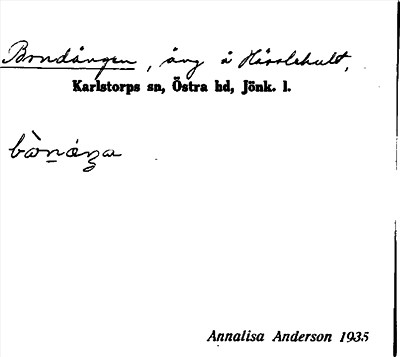 Brndången, äng å Hässlehult,
Karlstorps sn, Östra hd, Jönk. l.
Annalisa Anderson 1935